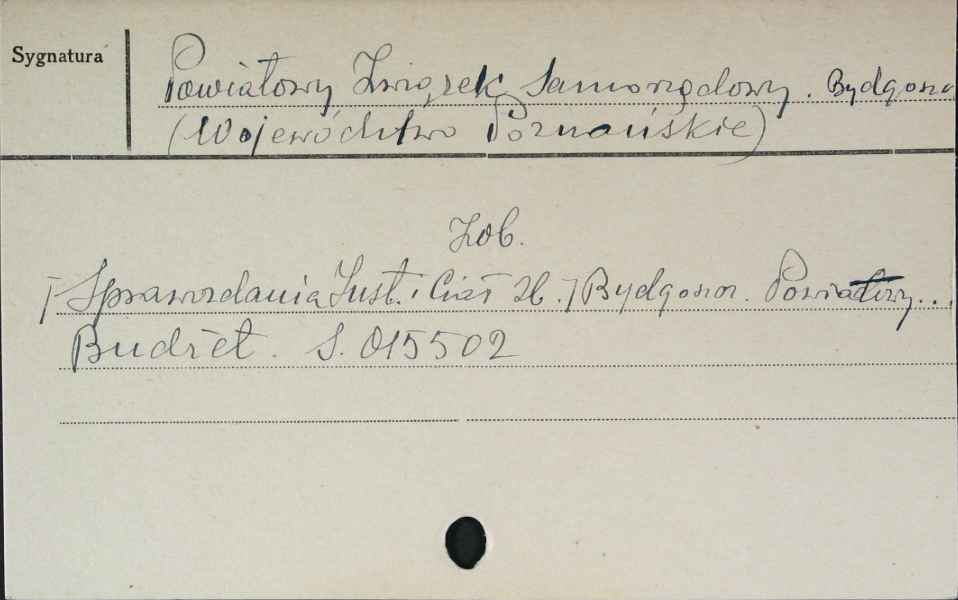 Sygnatura
Powiatowy Związek Samorządowy. Bydgosz
(Województwo Poznańskie)
Zob.
[Sprawozdania Inst. i Ciał Zb.] Bydgoszcz. Powiatowy...
Budżet. S. 015502